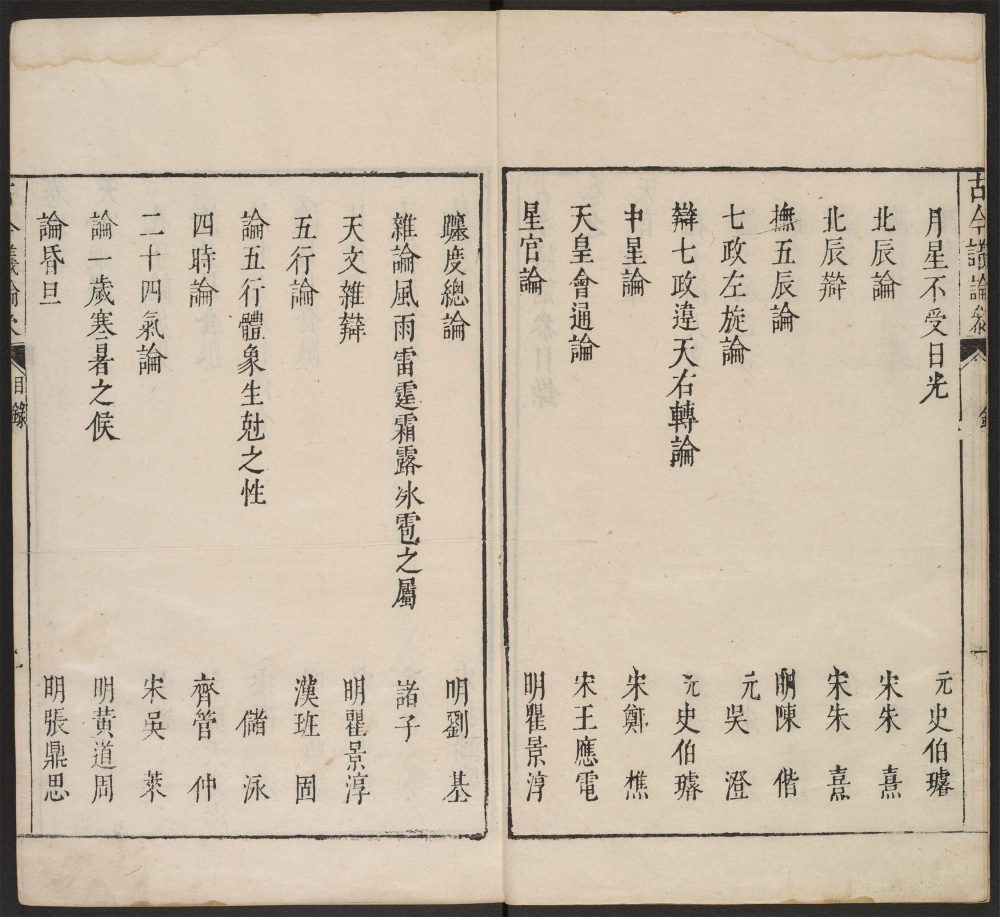 古今議論參
錄
一
月星不受日光　元史伯璿
北辰論　宋朱熹
北辰辯　宋朱熹
撫五辰論　明陳偕
七政左旋論　元吳澄
辯七政違天右轉論　元史伯璿
中星論　宋鄭樵
天皇會通論　宋王應電
星官論　明瞿景淳
躔度總論　明劉基
雜論風雨雷霆霜露冰雹之屬　諸子
天文雜辯　明瞿景淳
五行論　漢班固
論五行體象生尅之性　儲泳
四時論　齊管仲
二十四氣論　宋吳萊
論一歲寒暑之候　明黃道周
論昏旦　明張鼎思
古今議論參
目錄